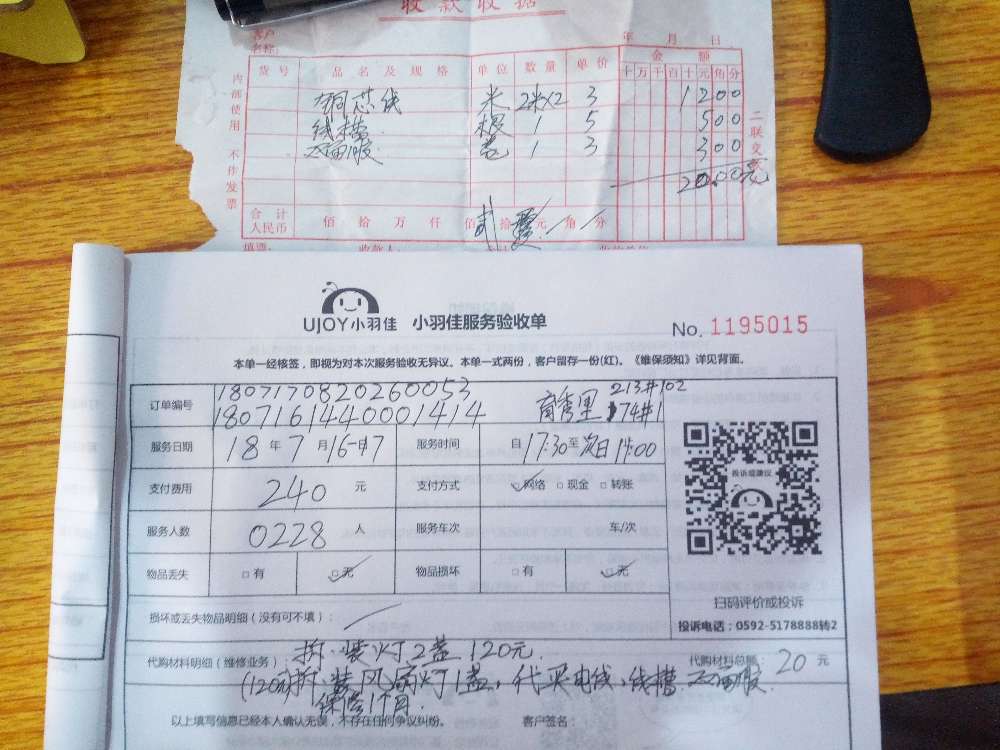 收款收据
客户
名称：
年 月 日
内部使用 不作发票
货号 品名及规格 单位 数量 单价 金额
十万千百十元角分
铜芯线 米 2米×2 3 1200
线槽 根 1 5 500
双面胶 卷 1 3 300
20.00元
二联交
合计
人民币 佰 拾 万 仟 佰 拾 元 角 分
填票： 收款人：
UJOY小羽佳 小羽佳服务验收单
No. 1195015
本单一经核签，即视为对本次服务验收无异议。本单一式两份，客户留存一份(红)。《维保须知》详见背面。
订单编号 1807170820260053
1807161440001414
213#102
174#1
服务日期 18 年 7 月 16-17 服务时间 自 17:30 至 次日 11:00
支付费用 240 元 支付方式 网络 □现金 □转账
投诉或建议
服务人数 0228 人 服务车次 车/次
物品丢失 □有 □无 物品损坏 □有 □无
扫码评价或投诉
损坏或丢失物品明细（没有可不填）：
投诉电话：0592-5178888转2
代购材料明细（维修业务）： 拆、装灯2盏120元.
代购材料总额： 20 元
(120元)拆、装风扇灯1盏，代买电线，线槽 双面胶.
以上填写信息已经本人确认无误，不存在任何争议纠纷。 客户签名：